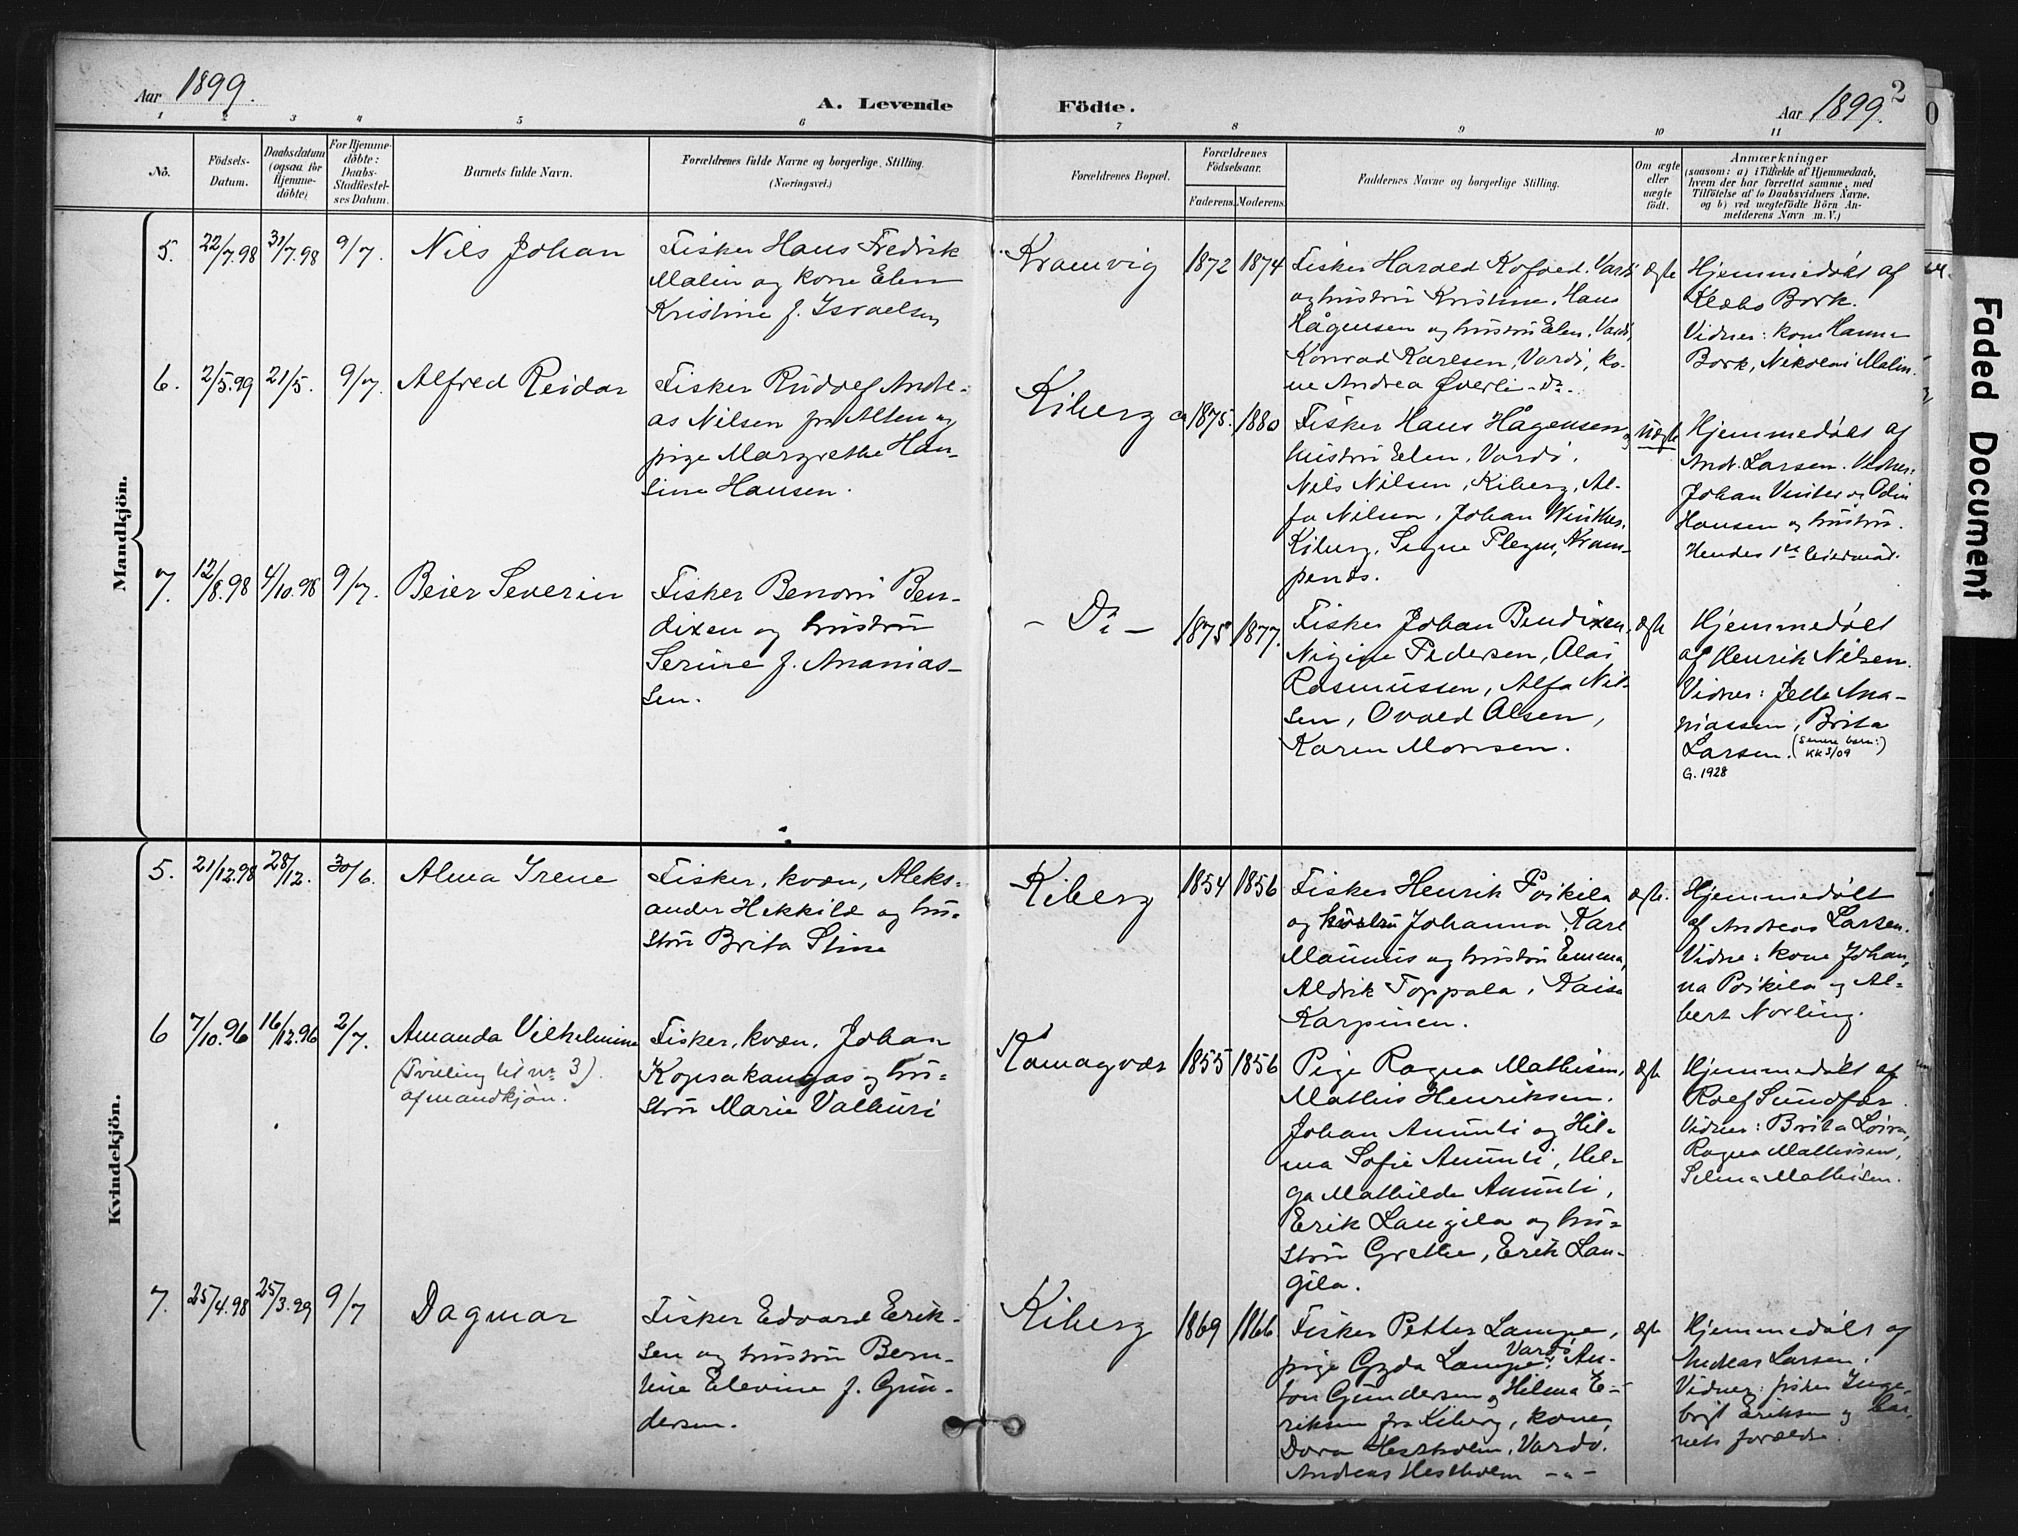 Aar 1899.
A. Levende Födte.
Aar 1899.
2
1 2 3 4 5 6 7 8 9 10 11
No.
Födsels-Datum.
Daabsdatum (ogsaa for Hjemme-döbte)
For Hjemme-döbte: Daabs-Stadfæstel-ses Datum.
Barnets fulde Navn.
Forældrenes fulde Navne og borgerlige Stilling.
(Næringsvei.)
Forældrenes Bopæl.
Forældrenes Födselsaar.
Faderens. Moderens.
Faddernes Navne og borgerlige Stilling.
Om ægte eller uægte födt.
Anmærkninger
(saasom: a) i Tilfælde af Hjemmedaab,
hvem der har forrettet samme, med
Tilföielse af to Daabsvidners Navne.
og b) ved uægtefödte Börn An-
melderens Navn m. V.)
Mandkjön.
5. 22/7.98 31/7.98 9/7. Nils Johan
Fisker Hans Fredrik
Malin og kone Elen
Kristine f. Israelsen
Kramvig 1872 1874
Fisker Harald Kofoed. Vardö
og hustru Kristine. Hans
Hågensen og hustru Elen. Vardö,
Konrad Karlsen, Vardö, ko-
ne Andrea Överli - do -.
ægte
Hjemmedøbt af
Klæbo Bork.
Vidner: kone Hanna
Bork, Nikolai Malin.
6. 2/5.99 21/5. 9/7. Alfred Reidar
Fisker Rudolf Andre-
as Nilsen fra Alten og
pige Margrethe Han-
sine Hansen.
Kiberg ca 1875. 1880
Fisker Hans Hågensen og
hustru Elen, Vardö.
Nils Nilsen, Kiberg, Al-
fa Nilsen, Johan Winther,
Kiberg, Signe Plezner, Kram-
penes.
Uægte
Hjemmedøbt af
And. Larsen. Vidner:
Johan Vinter og Odin
Hansen og hustru.
Hendes 1ste leiermaal.
7. 12/8.98 4/10.98 9/7. Beier Severin
Fisker Benoni Ben-
dixen og hustru
Serine f. Ananias-
sen.
- Do - 1875 1877.
Fisker Johan Bendixen,
Nigine Pedersen, Olai
Rasmussen, Alfa Nil-
sen, Ovald Olsen,
Karen Monsen.
ægte
Hjemmedøbt
af Henrik Nilsen.
Vidner: Jelle Ana-
niassen, Brita
Larsen. (senere barn:)
KK 3/09
G. 1928
Kvindekjön.
5. 21/12.98 28/12. 30/6. Alma Irene
Fisker, kvæn, Aleks-
ander Hekkilæ og hu-
stru Brita Stina
Kiberg 1854 1856
Fisker Henrik Poikila
og hustru Johanna, Karl
Maunus og hustru Emma,
Aldrik Toppala, Kaisa
Karpinen.
ægte.
Hjemmedøbt
af Andreas Larsen.
Vidne: kone Johan-
na Poikila og Al-
bert Norling.
6 7/10.96 16/12.96 2/7. Amanda Vilhelmine
(Tvilling til nr 3)
af mandkjön.
Fisker, kvæn, Johan
Kopsakangas og hu-
stru Marie Valkuri
Komagvær 1855 1856
Pige Ragna Mathisen,
Mathis Henriksen.
Johan Anunti og Hil-
ma Sofie Anunti, Hel-
ga Mathilde Anunti,
Erik Langila og hu-
stru Grethe, Erik Lan-
gila.
ægte
Hjemmedøbt af
Rolf Sundfær.
Vidner: Brita Loira,
Ragna Mathisen,
Selma Mathisen.
7. 25/4.98 25/3.99 9/7 Dagmar
Fisker Edvard Erik-
sen og hustru Bern-
tine Elevine f. Gun-
dersen.
Kiberg 1869 1866
Fisker Petter Lampe,
pige Gyda Lampe, Vardö. An-
ton Gundersen og Hilma E-
riksen fra Kiberg, kone
Dora Hestholm, Vardö.
Andreas Hestholm - " -
ægte
Hjemmedøbt af
Andreas Larsen.
Vidner: fisker Inge-
brigt Eriksen og bar-
nets forældre.
Faded Document